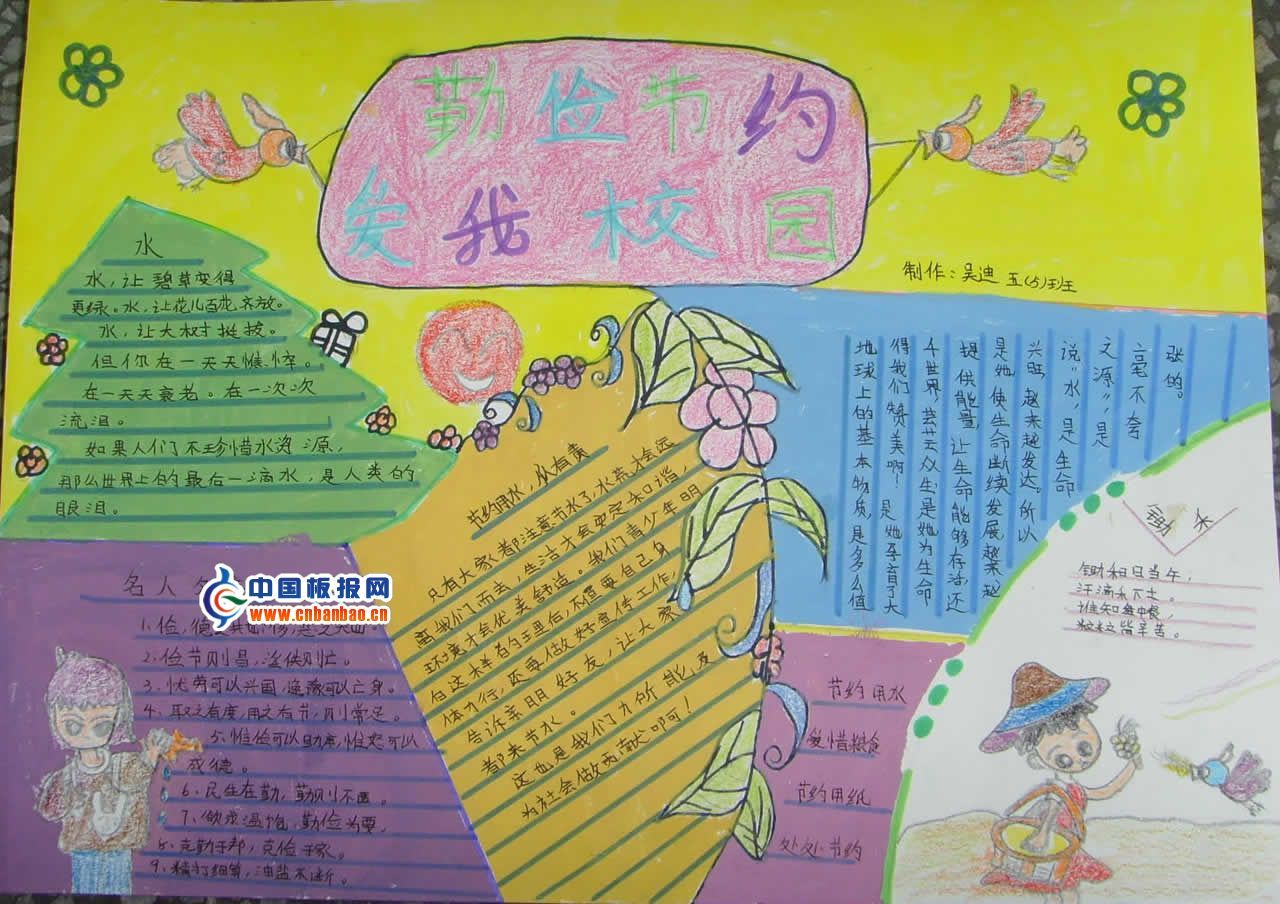 勤俭节约
爱我校园
制作：吴迪 五(5)班
水
水，让碧草变得
更绿。水，让花儿百花齐放。
水，让大树挺拔。
但你在一天天憔悴。
在一天天衰老。在一次次
流泪。
如果人们不珍惜水资源，
那么世界上的最后一滴水，是人类的
眼泪。
中国板报网
www.cnbanbao.cn
名人名
1、俭，德之共也；侈，恶之大也。
2、俭节则昌，淫佚则亡。
3、忧劳可以兴国，逸豫可以亡身。
4、取之有度，用之有节，则常足。
5、惟俭可以助廉，惟恕可以
成德。
6、民生在勤，勤则不匮。
7、欲求温饱，勤俭为要。
8、克勤于邦，克俭于家。
9、精打细算，油盐不断。
节约用水，从有责
只有大家都注意节水了，水荒才会远
离我们而去，生活才会安定和谐，
环境才会优美舒适。我们青少年明
白这样的道理后，不仅要自己身
体力行，还要做好宣传工作，
告诉亲朋好友，让大家
都来节水。
这也是我们力所能及
为社会做两献叩可！
张的。
亳不夸
文源”，是
说“水，是生命
兴旺，越来越发达。所以
是她，使生命断续发展，越来越
提供能量，让生命能够存活；还
千世界，芸芸众生；是她为生命
得我们赞美啊！是她孕育了大
地球上的基本物质，是多么值
锄禾
锄和日当午，
汗滴禾下土。
谁知盘中餐，
粒粒皆辛苦。
节约用水
爱惜粮食
节约用纸
处处节约